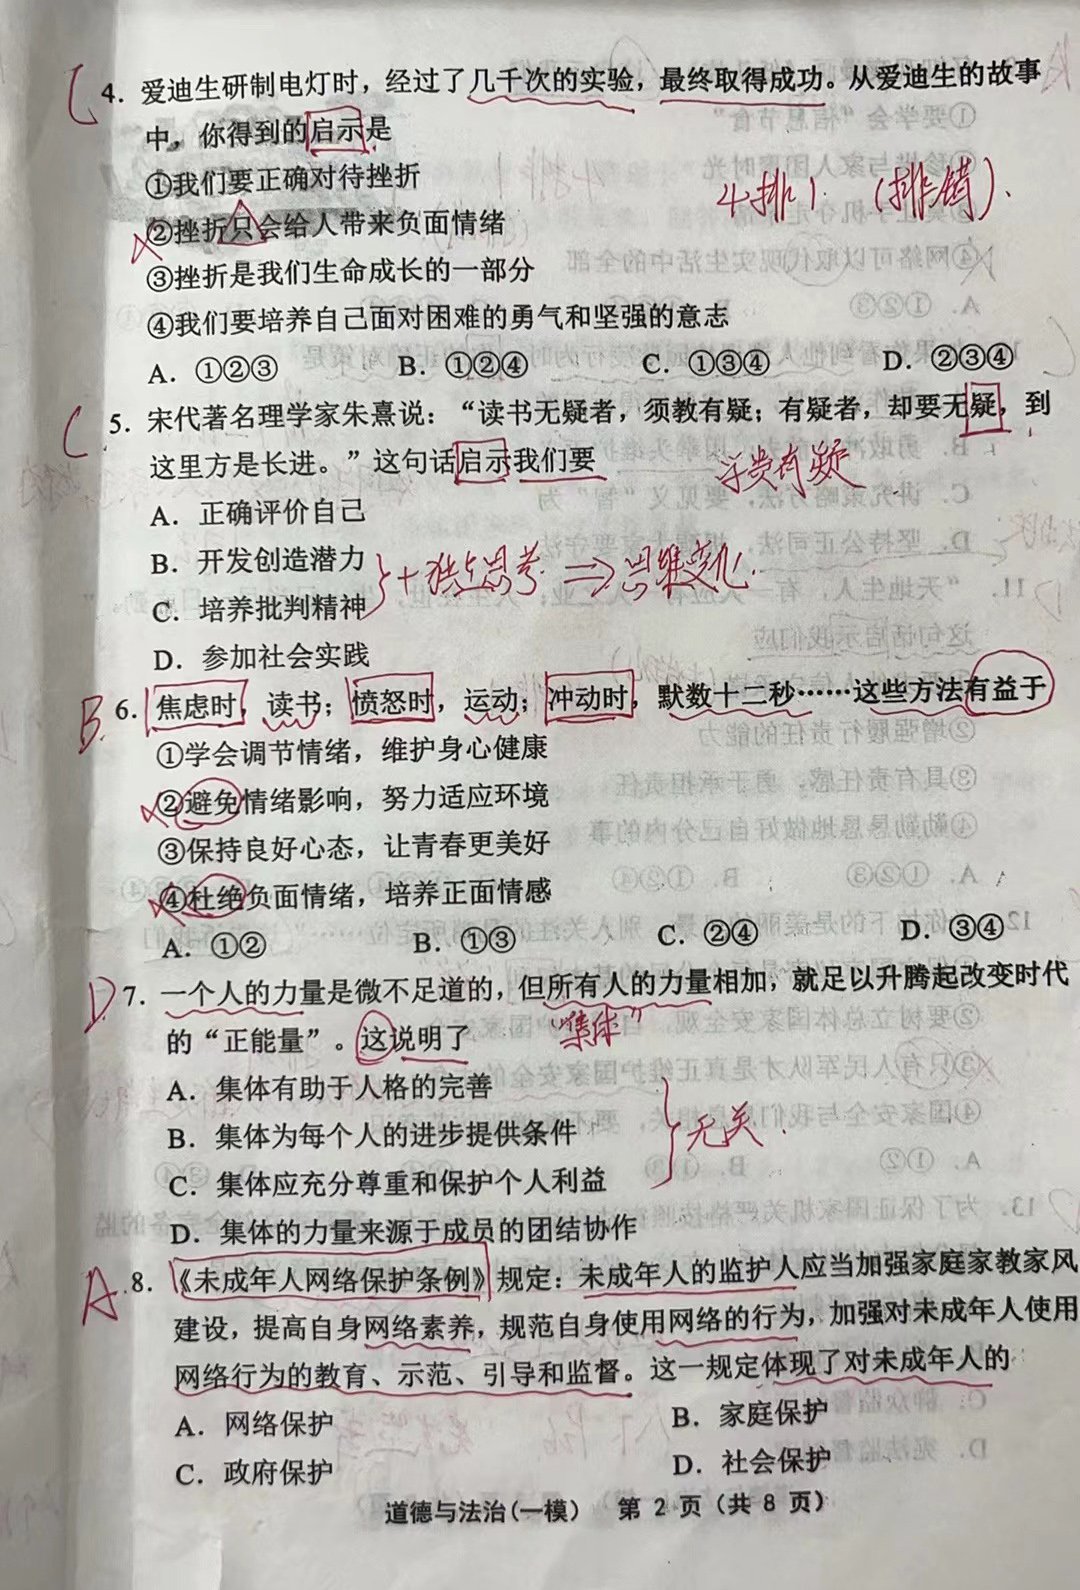 C 4. 爱迪生研制电灯时，经过了几千次的实验，最终取得成功。从爱迪生的故事
中，你得到的启示是
①我们要正确对待挫折
4排1 (排错).
②挫折只会给人带来负面情绪
③挫折是我们生命成长的一部分
④我们要培养自己面对困难的勇气和坚强的意志
A. ①②③ B. ①②④ C. ①③④ D. ②③④
C 5. 宋代著名理学家朱熹说：“读书无疑者，须教有疑；有疑者，却要无疑，到
这里方是长进。”这句话启示我们要
学贵有疑
A. 正确评价自己
B. 开发创造潜力
+独立思考 ⇒思维变化.
C. 培养批判精神
D. 参加社会实践
B. 6. 焦虑时，读书；愤怒时，运动；冲动时，默数十二秒……这些方法有益于
①学会调节情绪，维护身心健康
②避免情绪影响，努力适应环境
③保持良好心态，让青春更美好
④杜绝负面情绪，培养正面情感
A. ①② B. ①③ C. ②④ D. ③④
D. 7. 一个人的力量是微不足道的，但所有人的力量相加，就足以升腾起改变时代
的“正能量”。这说明了
“集体”
A. 集体有助于人格的完善
B. 集体为每个人的进步提供条件
无关.
C. 集体应充分尊重和保护个人利益
D. 集体的力量来源于成员的团结协作
A. 8. 《未成年人网络保护条例》规定：未成年人的监护人应当加强家庭家教家风
建设，提高自身网络素养，规范自身使用网络的行为，加强对未成年人使用
网络行为的教育、示范、引导和监督。这一规定体现了对未成年人的
A. 网络保护 B. 家庭保护
C. 政府保护 D. 社会保护
道德与法治(一模) 第 2 页（共 8 页）